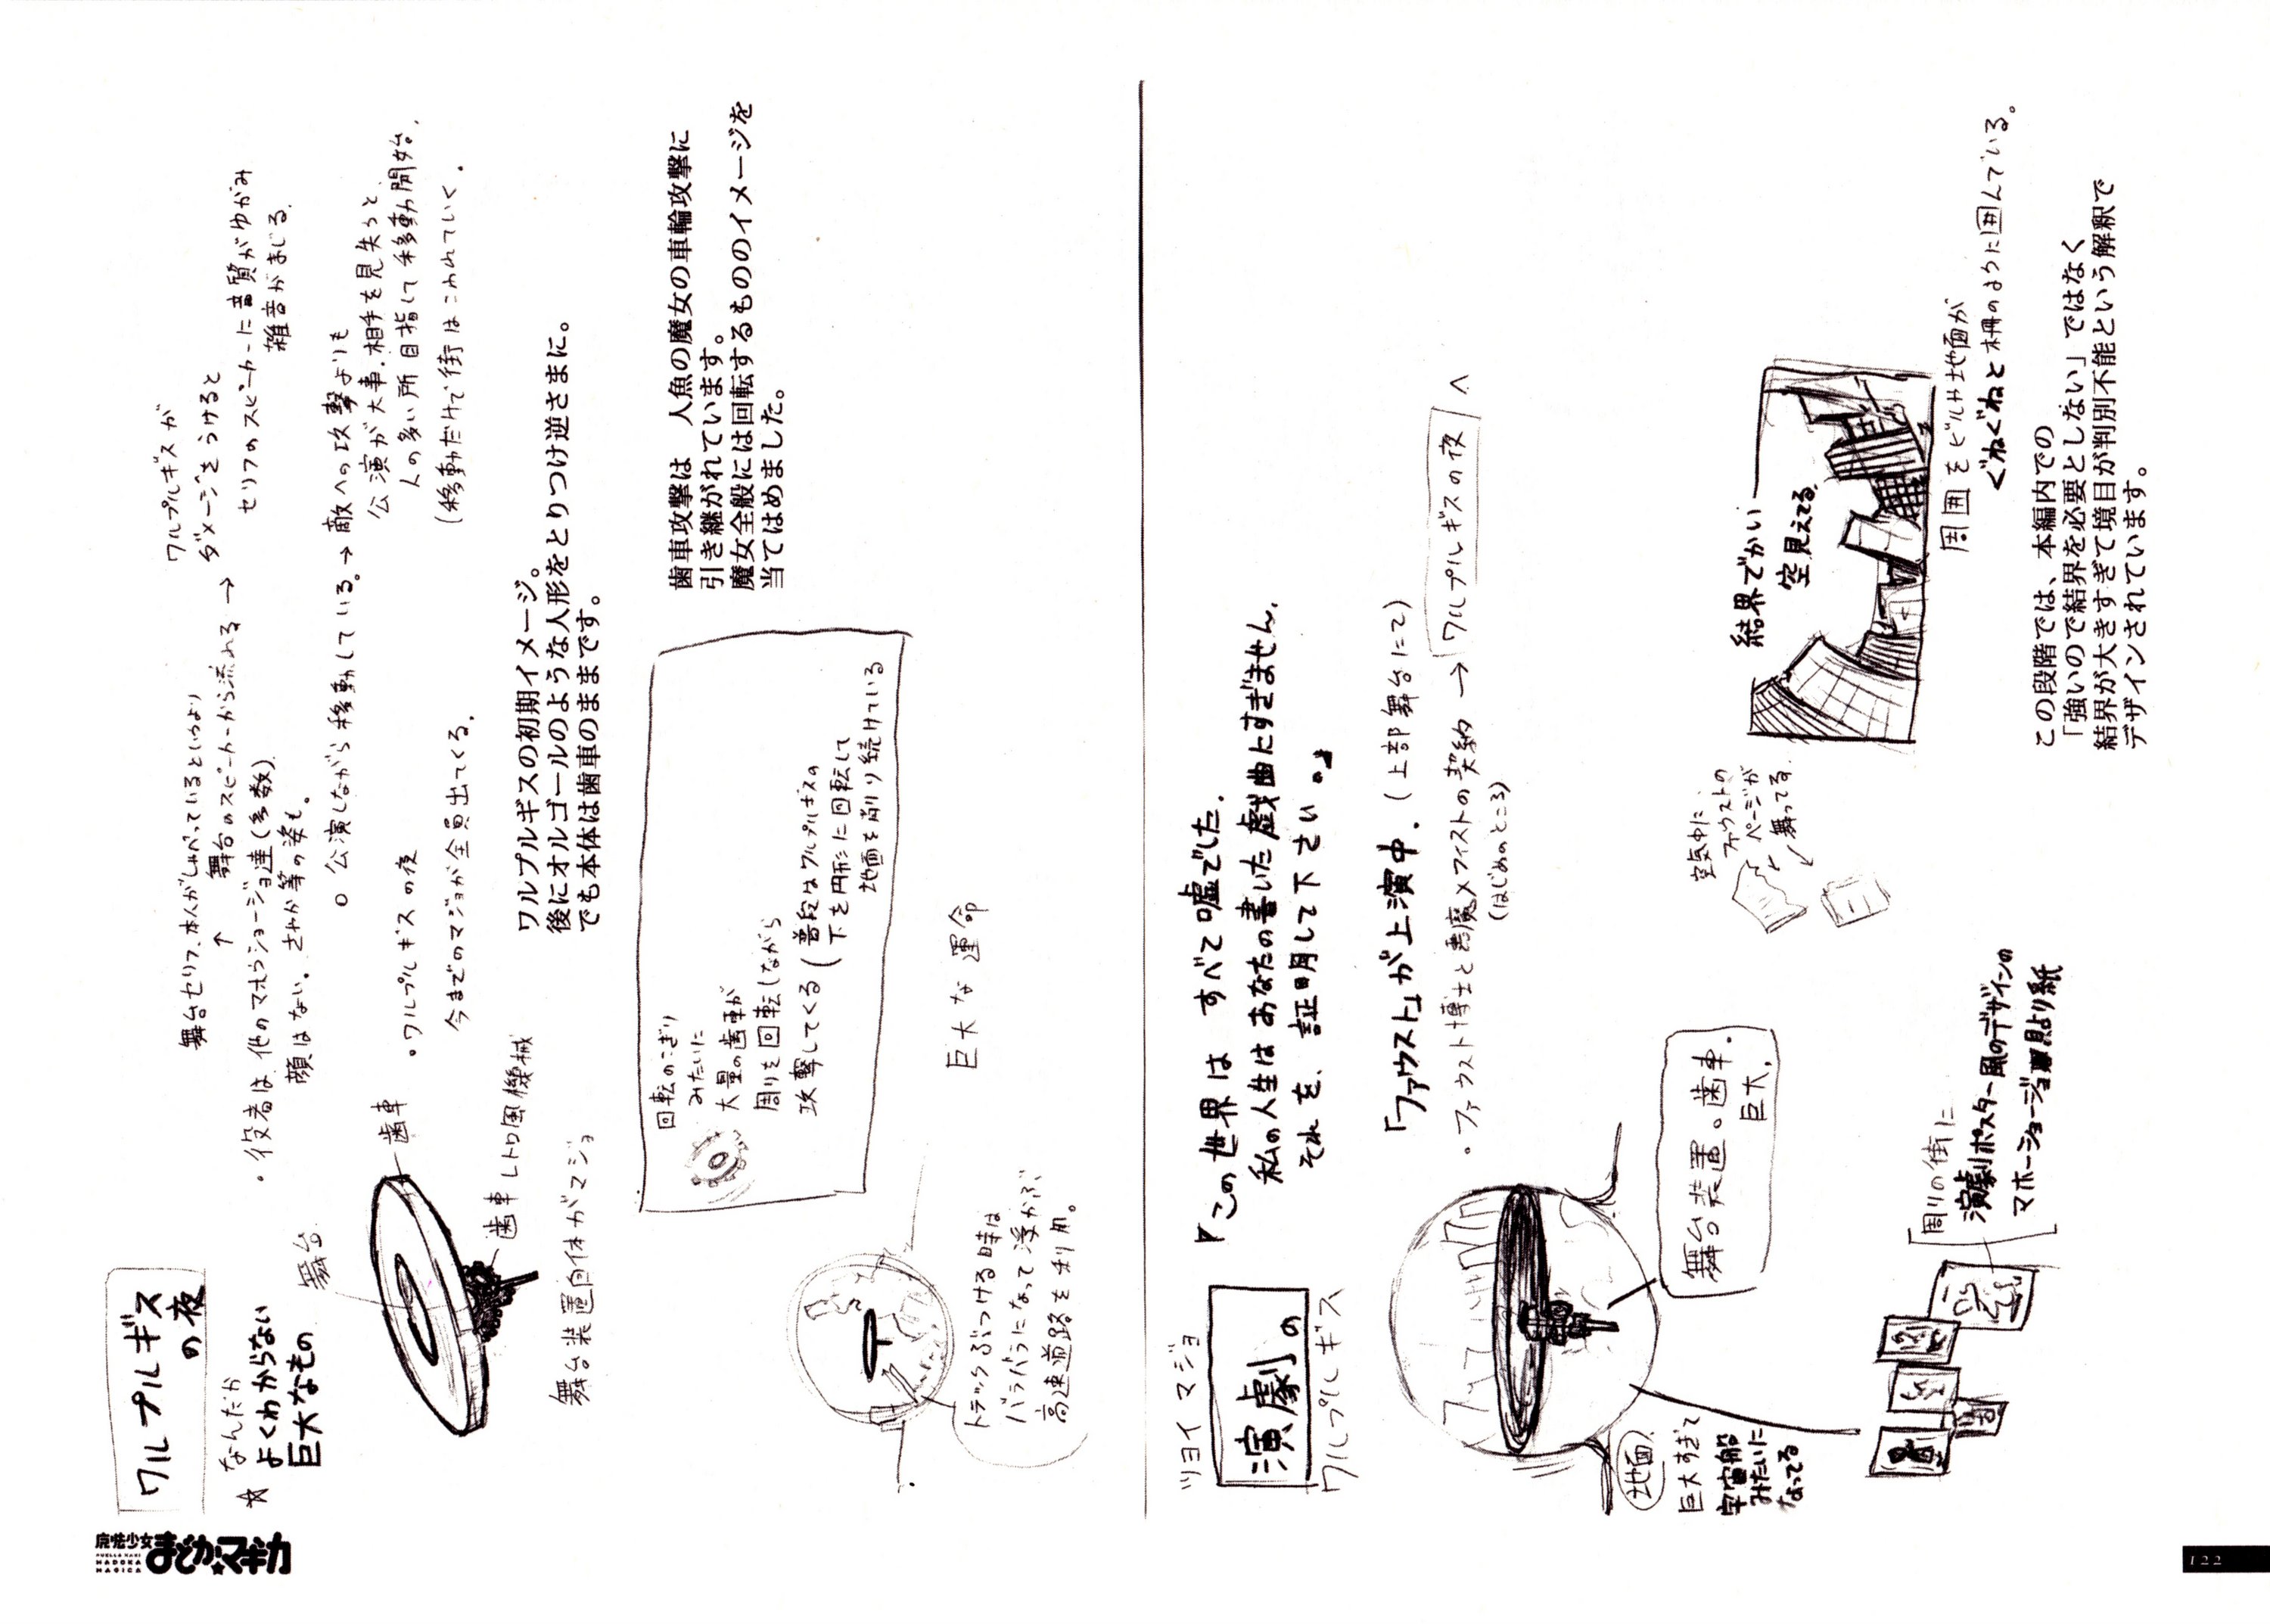 魔法少女
まどか☆マギカ
PUELLA MAGI
MADOKA
MAGICA
ワルプルギス
の夜
☆ なんだか
よくわからない
巨大なもの
舞台セリフ、本人がしゃべっているというより
↑ 舞台のスピーカーから流れる →
ワルプルギスが
ダメージをうけると
セリフのスピーカーに音質がゆがみ
雑音がまじる。
・役者は他のマホウショージョ達(多数)
顔はない。さやか等の姿も。
○ 公演しながら移動している。→ 敵への攻撃よりも
公演が大事。相手を見失うと
人の多い所目指して移動開始。
(移動だけで街はこわれていく。
・ワルプルギスの夜
今までのマジョが全員出てくる。
舞台
歯車
歯車 レトロ風機械
舞台装置自体がマジョ
ワルプルギスの初期イメージ。
後にオルゴールのような人形をとりつけ逆さまに。
でも本体は歯車のままです。
回転のこぎり
みたいに
大量の歯車が
周りを回転しながら
攻撃してくる(普段はワルプルギスの
下を円形に回転して
地面を削り続けている
歯車攻撃は、人魚の魔女の車輪攻撃に
引き継がれています。
魔女全般には回転するもののイメージを
当てはめました。
巨大な運命
トラックぶつける時は
バラバラになって浮かぶ
高速道路を利用。
ツヨイ マジョ
演劇の
ワルプルギス
『この世界は すべて嘘でした。
私の人生はあなたの書いた戯曲にすぎません。
それを、証明して下さい。』
「ファウスト」が上演中。(上部舞台にて)
・ファウスト博士と悪魔メフィストの契約 → ワルプルギスの夜 へ
(はじめのところ)
地面
巨大すぎて
宇宙船
みたいに
なってる
舞台装置。歯車。
巨大。
空気中に
ファウストの
ページが
舞ってる
結界でかい
空見えてる
周囲をビルや地面が
ぐねぐねと柵のように囲んでいる。
周りの街に
演劇ポスター風のデザインの
マホーショージョ貼り紙
この段階では、本編内での
「強いので結界を必要としない」ではなく
結界が大きすぎて境目が判別不能という解釈で
デザインされています。
122